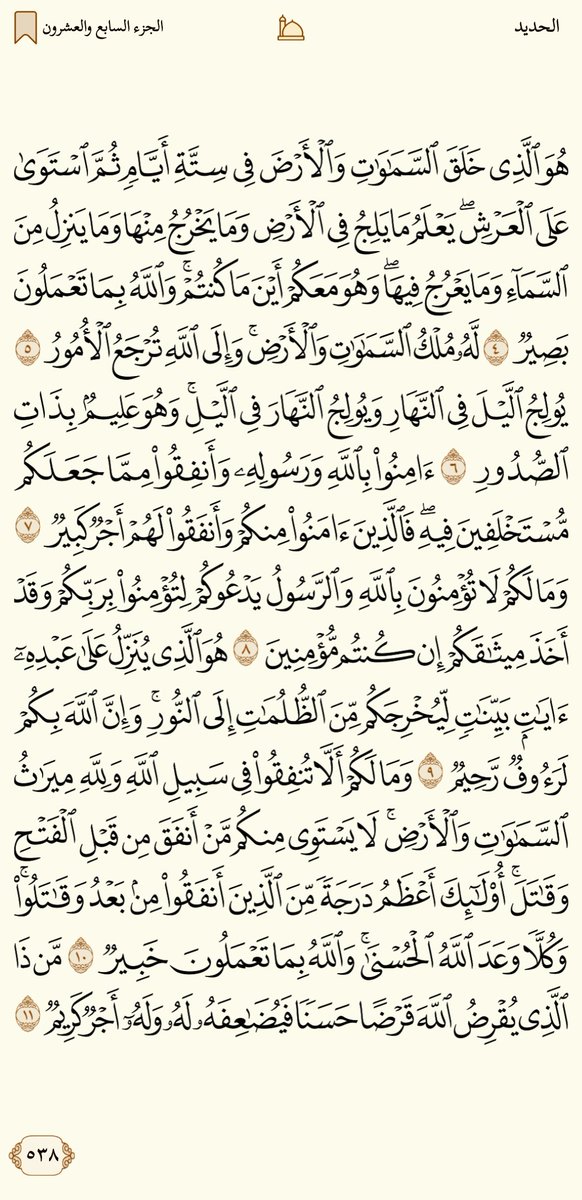 الحديد
الجزء السابع والعشرون
هُوَ ٱلَّذِى خَلَقَ ٱلسَّمَٰوَٰتِ وَٱلْأَرْضَ فِى سِتَّةِ أَيَّامٍ ثُمَّ ٱسْتَوَىٰ
عَلَى ٱلْعَرْشِ ۖ يَعْلَمُ مَا يَلِجُ فِى ٱلْأَرْضِ وَمَا يَخْرُجُ مِنْهَا وَمَا يَنزِلُ مِنَ
ٱلسَّمَآءِ وَمَا يَعْرُجُ فِيهَا ۖ وَهُوَ مَعَكُمْ أَيْنَ مَا كُنتُمْ ۚ وَٱللَّهُ بِمَا تَعْمَلُونَ
بَصِيرٌ ٤ لَّهُۥ مُلْكُ ٱلسَّمَٰوَٰتِ وَٱلْأَرْضِ ۚ وَإِلَى ٱللَّهِ تُرْجَعُ ٱلْأُمُورُ ٥
يُولِجُ ٱلَّيْلَ فِى ٱلنَّهَارِ وَيُولِجُ ٱلنَّهَارَ فِى ٱلَّيْلِ ۚ وَهُوَ عَلِيمٌۢ بِذَاتِ
ٱلصُّدُورِ ٦ ءَامِنُوا۟ بِٱللَّهِ وَرَسُولِهِۦ وَأَنفِقُوا۟ مِمَّا جَعَلَكُم
مُّسْتَخْلَفِينَ فِيهِ ۖ فَٱلَّذِينَ ءَامَنُوا۟ مِنكُمْ وَأَنفَقُوا۟ لَهُمْ أَجْرٌ كَبِيرٌ ٧
وَمَا لَكُمْ لَا تُؤْمِنُونَ بِٱللَّهِ وَٱلرَّسُولُ يَدْعُوكُمْ لِتُؤْمِنُوا۟ بِرَبِّكُمْ وَقَدْ
أَخَذَ مِيثَٰقَكُمْ إِن كُنتُم مُّؤْمِنِينَ ٨ هُوَ ٱلَّذِى يُنَزِّلُ عَلَىٰ عَبْدِهِۦٓ
ءَايَٰتٍۭ بَيِّنَٰتٍ لِّيُخْرِجَكُم مِّنَ ٱلظُّلُمَٰتِ إِلَى ٱلنُّورِ ۚ وَإِنَّ ٱللَّهَ بِكُمْ
لَرَءُوفٌ رَّحِيمٌ ٩ وَمَا لَكُمْ أَلَّا تُنفِقُوا۟ فِى سَبِيلِ ٱللَّهِ وَلِلَّهِ مِيرَٰثُ
ٱلسَّمَٰوَٰتِ وَٱلْأَرْضِ ۚ لَا يَسْتَوِى مِنكُم مَّنْ أَنفَقَ مِن قَبْلِ ٱلْفَتْحِ
وَقَٰتَلَ ۚ أُو۟لَٰٓئِكَ أَعْظَمُ دَرَجَةً مِّنَ ٱلَّذِينَ أَنفَقُوا۟ مِنۢ بَعْدُ وَقَٰتَلُوا۟ ۚ
وَكُلًّا وَعَدَ ٱللَّهُ ٱلْحُسْنَىٰ ۚ وَٱللَّهُ بِمَا تَعْمَلُونَ خَبِيرٌ ١٠ مَّن ذَا
ٱلَّذِى يُقْرِضُ ٱللَّهَ قَرْضًا حَسَنًا فَيُضَٰعِفَهُۥ لَهُۥ وَلَهُۥٓ أَجْرٌ كَرِيمٌ ١١
٥٣٨